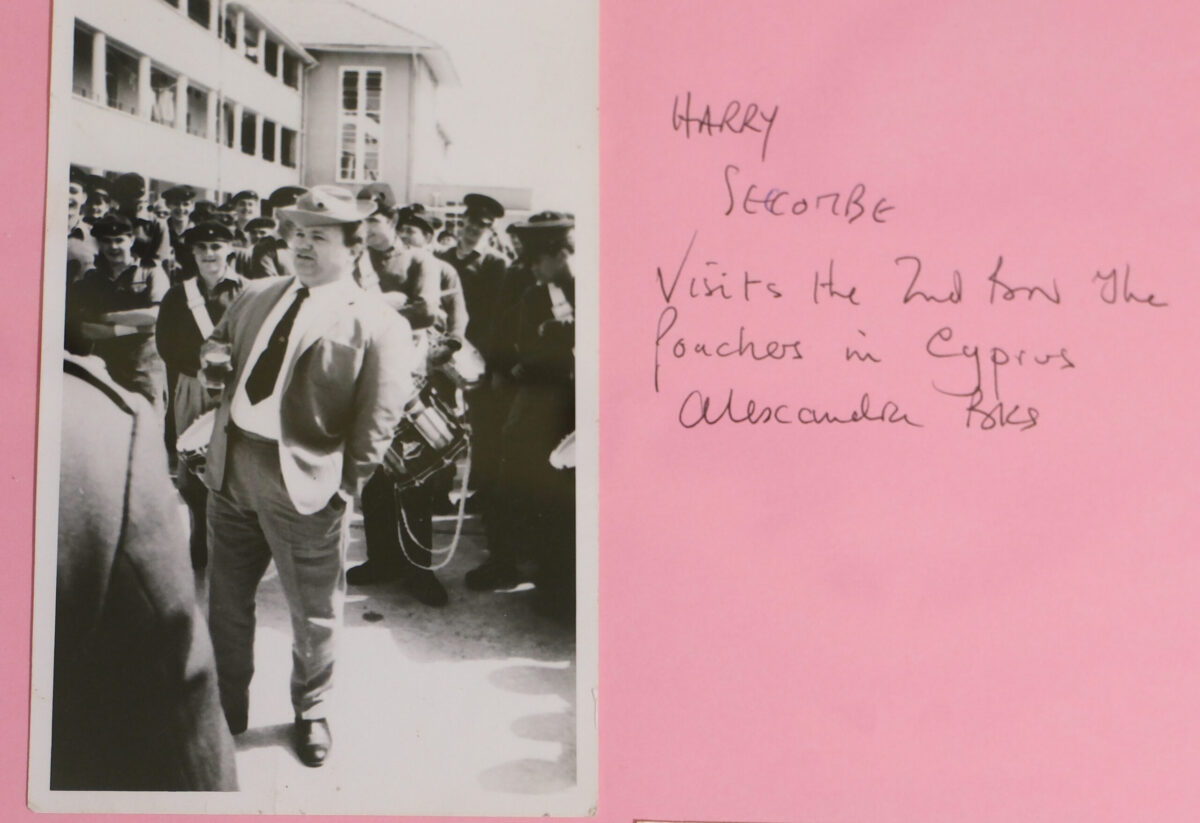 HARRY
SECOMBE
Visits the 2nd Bn The
Poachers in Cyprus
Alexandra Bks